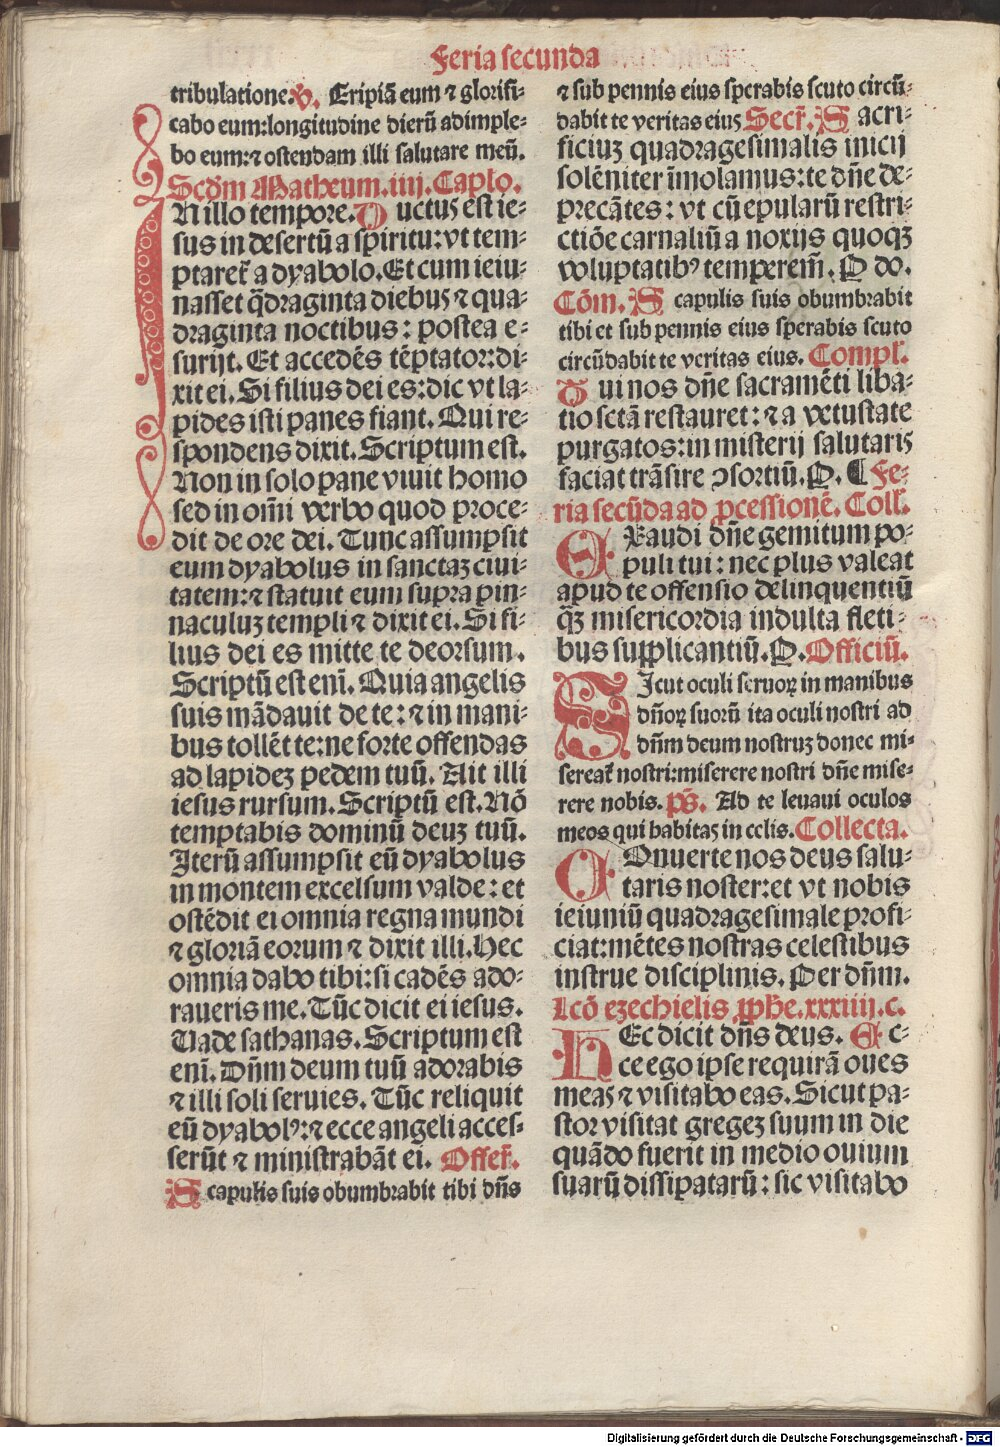 Feria secunda
tribulatione. V̄. Eripiā eum ⁊ glorifi⸗
cabo eum:longitudine dierū adimple⸗
bo eum:⁊ ostendam illi salutare meū.
Scd̄m Matheum.iiij.Caplo.
IN illo tempore. Ductꝰ est ie⸗
sus in desertū a spiritu:vt tem⸗
ptaret̄ a dyabolo.Et cum ieiu⸗
nasset q̄draginta diebus ⁊ qua⸗
draginta noctibus: postea e⸗
surijt. Et accedēs tēptator:di⸗
xit ei. Si filius dei es:dic vt la⸗
pides isti panes fiant. Qui re⸗
spondens dixit. Scriptum est.
Non in solo pane viuit homo
sed in om̄i verbo quod proce⸗
dit de ore dei. Tunc assumpsit
eum dyabolus in sanctaꝫ ciui⸗
tatem:⁊ statuit eum supra pin⸗
naculuꝫ templi ⁊ dixit ei. Si fi⸗
lius dei es mitte te deorsum.
Scriptū est eni̅. Quia angelis
suis mādauit de te:⁊ in mani⸗
bus tollēt te:ne forte offendas
ad lapideꝫ pedem tuū. Ait illi
iesus rursum. Scriptū est. Nō
temptabis dominū deuꝫ tuū.
Iterū assumpsit eū dyabolus
in montem excelsum valde: et
ostēdit ei omnia regna mundi
⁊ gloriā eorum ⁊ dixit illi. Hec
omnia dabo tibi:si cadēs ado⸗
raueris me. Tūc dicit ei iesus.
Vade sathanas. Scriptum est
eni̅. Dn̄m deum tuū adorabis
⁊ illi soli seruies. Tūc reliquit
eū dyabolꝰ:⁊ ecce angeli acces⸗
serūt ⁊ ministrabāt ei. Offer̄.
Scapulis suis obumbrabit tibi dn̄s
⁊ sub pennis eius sperabis scuto circū⸗
dabit te veritas eius Secr̄. Sacri⸗
ficiuꝫ quadragesimalis inicij
solēniter īmolamus:te dn̄e de⸗
precātes: vt cū epularū restri⸗
ctiōe carnaliū a noxijs quoqꝫ
voluptatibꝰ temperem̄. P do.
Cōm. Scapulis suis obumbrabit
tibi et sub pennis eius sperabis scuto
circūdabit te veritas eius. Compl̄.
Tui nos dn̄e sacramēti liba⸗
tio sctā restauret: ⁊ a vetustate
purgatos:in misterij salutaris
faciat trāsire ꝯsortiū. P. ¶ Fe⸗
ria secūda ad ꝓcessionē. Coll̄.
EXaudi dn̄e gemitum po⸗
puli tui: nec plus valeat
apud te offensio delinquentiū
qꝫ̄ misericordia indulta fleti⸗
bus supplicantiū. P. Officiū.
SIcut oculi seruoꝝ in manibus
dn̄oꝝ suorū ita oculi nostri ad
dn̄m deum nostruꝫ donec mi⸗
sereat̄ nostri:miserere nostri dn̄e mise⸗
rere nobis. ps̄. Ad te leuaui oculos
meos qui habitas in celis. Collecta.
COnuerte nos deus salu⸗
taris noster:et vt nobis
ieiuniū quadragesimale profi⸗
ciat:mētes nostras celestibus
instrue disciplinis. Per dn̄m.
Lcō ezechielis ꝓphe.xxxiiij.c.
HEc dicit dn̄s deus. Ec⸗
ce ego ipse requirā oues
meas ⁊ visitabo eas. Sicut pa⸗
stor visitat gregeꝫ suum in die
quādo fuerit in medio ouium
suarū dissipatarū: sic visitabo
Digitalisierung gefördert durch die Deutsche Forschungsgemeinschaft - DFG